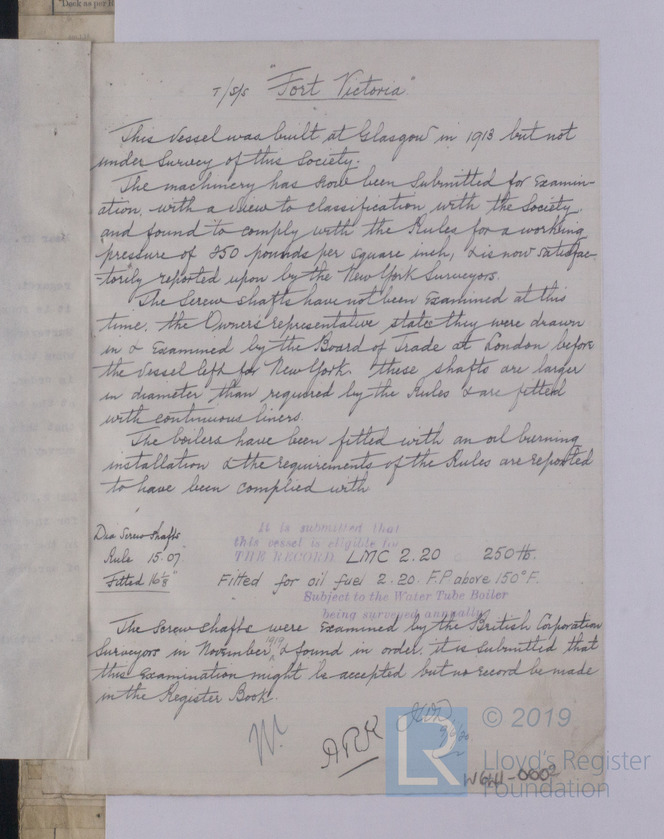 "Dock as per R
T/S/S "Fort Victoria"
This Vessel was built at Glasgow in 1913 but not
under Survey of this Society.
The machinery has now been Submitted for Examin-
ation, with a view to classification with the Society
and found to comply with the Rules for a working
pressure of 250 pounds per square inch, & is now satisfac-
-torily reported upon by the New York Surveyors.
The Screw shafts have not been Examined at this
time, the Owners representative states they were drawn
in & Examined by the Board of Trade at London before
the Vessel left for New York. these shafts are larger
in diameter than required by the Rules & are fitted
with continuous liners.
The boilers have been fitted with an oil burning
installation & the requirements of the Rules are reported
to have been complied with
Dia Screw shafts
Rule 15.07"
Fitted 16 1/8"
It is submitted that
this vessel is eligible for
THE RECORD LMC 2.20 250 lb.
Fitted for oil fuel 2.20 F.P above 150°F.
Subject to the Water Tube Boiler
being surveyed annually
The Screw shafts were Examined by the British Corporation
Surveyors in November 1919 & found in order, it is submitted that
this Examination might be accepted but no record be made
in the Register Book.
ARK
© 2019
LR
Lloyd's Register
Foundation
W611-0002